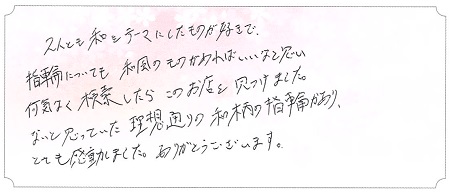 2人とも和をテーマにしたものが好きで、
指輪についても 和風のものがあればいいなと思い
何気なく検索したらこのお店を見つけました。
ないと思っていた理想通りの和柄の指輪があり、
とても感動しました。ありがとうございます。